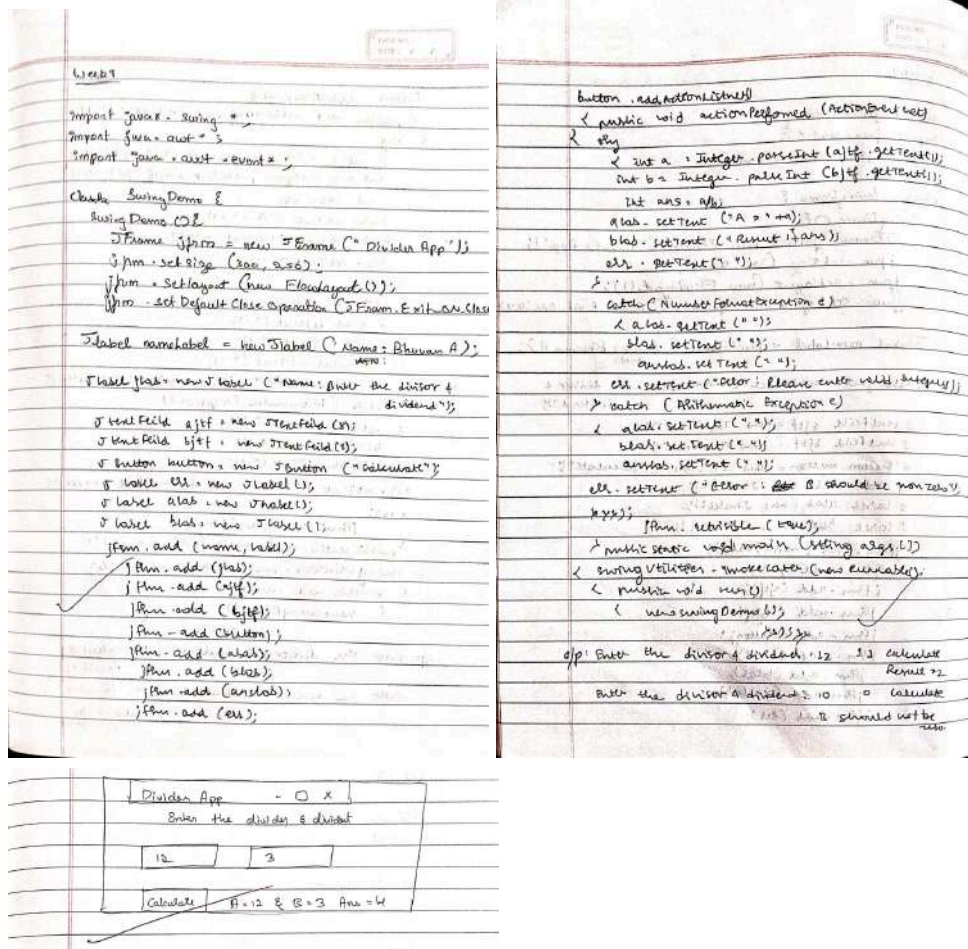 Week 9
import javax. swing. *;
import java. awt *;
import java. awt. event *;
Class SwingDemo {
SwingDemo () {
JFrame jfrm = new JFrame (" Divider App");
jfrm . set size (300, 250);
jfrm . setlayout (new FlowLayout ());
jfrm . set Default Close Operation (JFram. Exit_ON_Close
Jlabel nameLabel = new Jlabel ( Name: Bhuvan A);
Jlabel jlab = new Jlabel ("Name: Enter the divisor &
dividend");
J textFeild ajtf = new JTextFeild (8);
J textFeild bjtf = new JTextFeild (8);
J Button button = new JButton ("Calculate");
J label err = new Jlabel ();
J label alab = new Jlabel ();
J label blab = new Jlabel ();
jfrm . add (name, label);
jfrm . add (jlab);
jfrm . add (ajtf);
jfrm . add (bjtf);
jfrm - add (button);
jfrm . add (alab);
jfrm . add (blab);
jfrm . add (anslab);
jfrm . add (err);
button . add ActionListner()
{ public void actionPerfomed (ActionEvent
{ try
{ int a = Integer . parseInt (ajtf . getText ());
int b = Integer . parseInt (bjtf . getText ());
Int ans = a/b;
alab . setText ("A = " +a);
blab . setText ("Result + ans);
err . setText (" ");
}
catch ( Number Format Exception e)
{ alab . setText (" ");
blab . setText (" ");
anslab . set Text (" ");
err . setText ("Error : Please enter valid
} catch ( Arithematic Exception e)
{ alab . setText (" ");
blab . set Text (" ");
anslab . setText (" ");
err . setText ("Error : B should be non zero");
}}});
jfrm . setvisible (true);
} public static void main (string args [])
{ swing Utilities . invoke Later (new Runnable()
{ public void run ()
{ new swing Demo ();
}});}}
o/p: Enter the divisor & dividend : 12 calculate
Result =2
Enter the divisor & dividend : 10 0 calculate
B should not be
zero
Divider App - O X
Enter the divider & divident
12 3
Calculate A = 12 & B = 3 Ans = 4